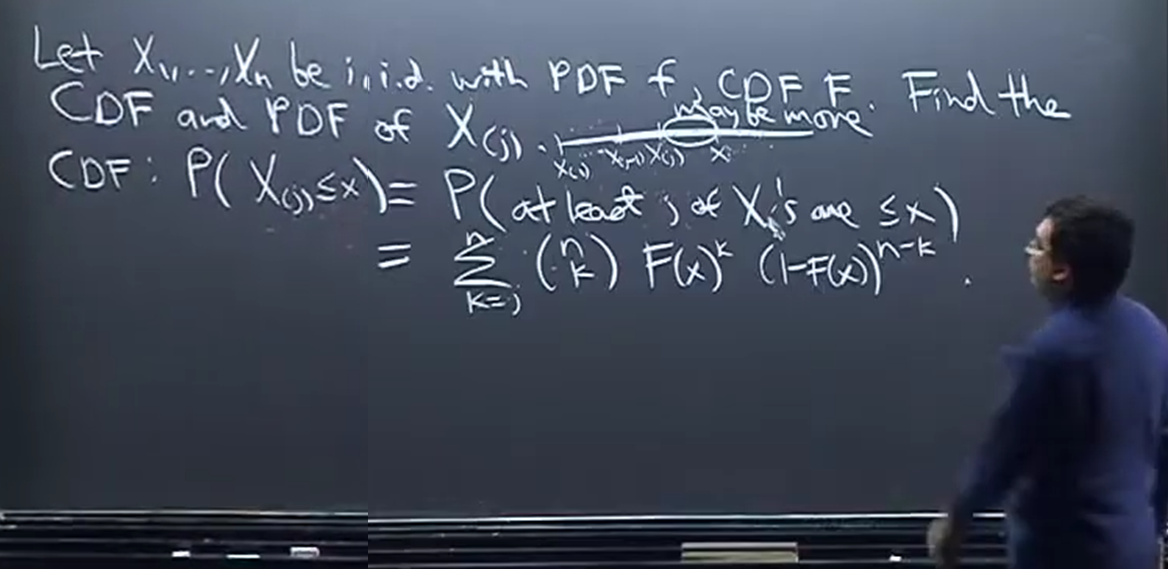 Let X₁,...,Xₙ be i.i.d. with PDF f, CDF F. Find the
CDF and PDF of X₍ⱼ₎.
may be more
X₍₁₎ X₍ⱼ₋₁₎ X₍ⱼ₎ x
CDF: P(X₍ⱼ₎≤x) = P(at least j of Xᵢ's are ≤x)
= ∑ₖ₌ⱼⁿ (n k) F(x)ᵏ (1-F(x))ⁿ⁻ᵏ.